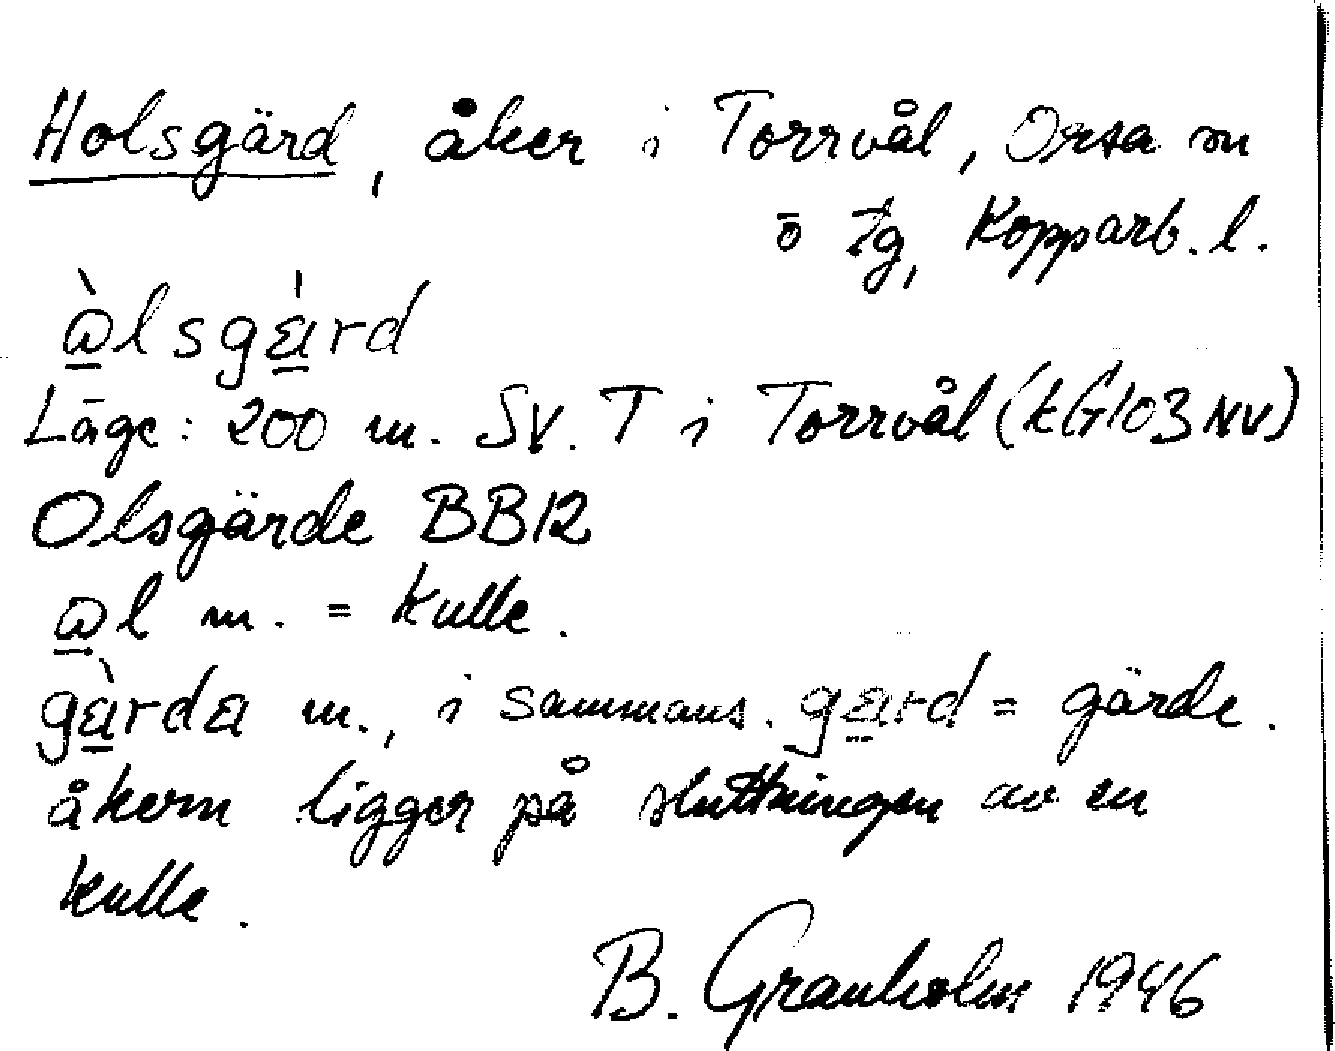 Holsgärd, åker i Torrvål, Orsa sn
o tg, Kopparb. l.
ὰlsgɛ́rd
Läge: 200 m. SV. T i Torrvål (kG103NV)
Olsgärde BB12
ɑl m. = kulle.
gὰrda m., i sammans. gard = gärde.
åkern ligger på sluttningen av en
kulle.
B. Granholm 1946